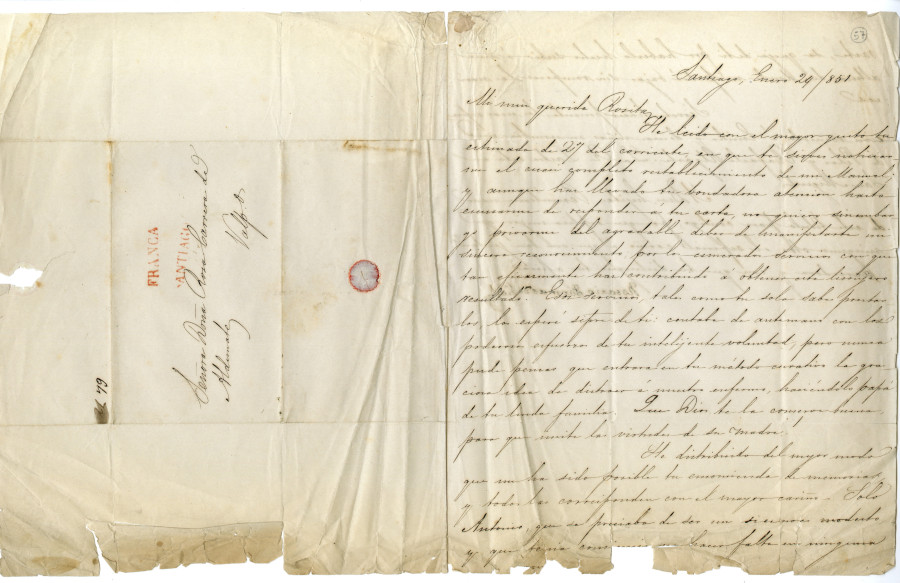 57
Santiago, Enero 29/851
Mi mui querida Rosita,
He leido con el mayor gusto tu
estimada de 27 del corriente en que te sirves noticiar
me el casi completo restablecimiento de mi Manuel;
y aunque has llevado tu bondadosa atencion hasta
escusarme de responder á tu carta, no quiero sinembar
go privarme del agradable deber de manifestarte mi
sincero reconocimiento por los esmerados servicios con que
tan eficazmente has contribuido a obtener este lisonjero
resultado. Esos servicios, tales como tu sola sabes prestar
los, los esperé siempre de ti: contaba de antemano con los
poderosos esfuerzos de tu intelijente voluntad, pero nunca
pude pensar que entrara en tu método curativo la gra
ciosa idea de distraer á nuestro enfermo, haciendolo papá
de tu linda familia. Que Dios te la conserve buena,
para que imite las virtudes de su madre!
He distribuido del mejor modo
que me ha sido posible tu encomienda de memorias
y todos las corresponden con el mayor cariño. Solo
Antonio, que se preciaba de ser un si es no es modesto
y que tenia falta en ninguna
FRANCA
SANTIAGO
Señora Doña Rosa Carrera de
Aldunate
Valpo
49